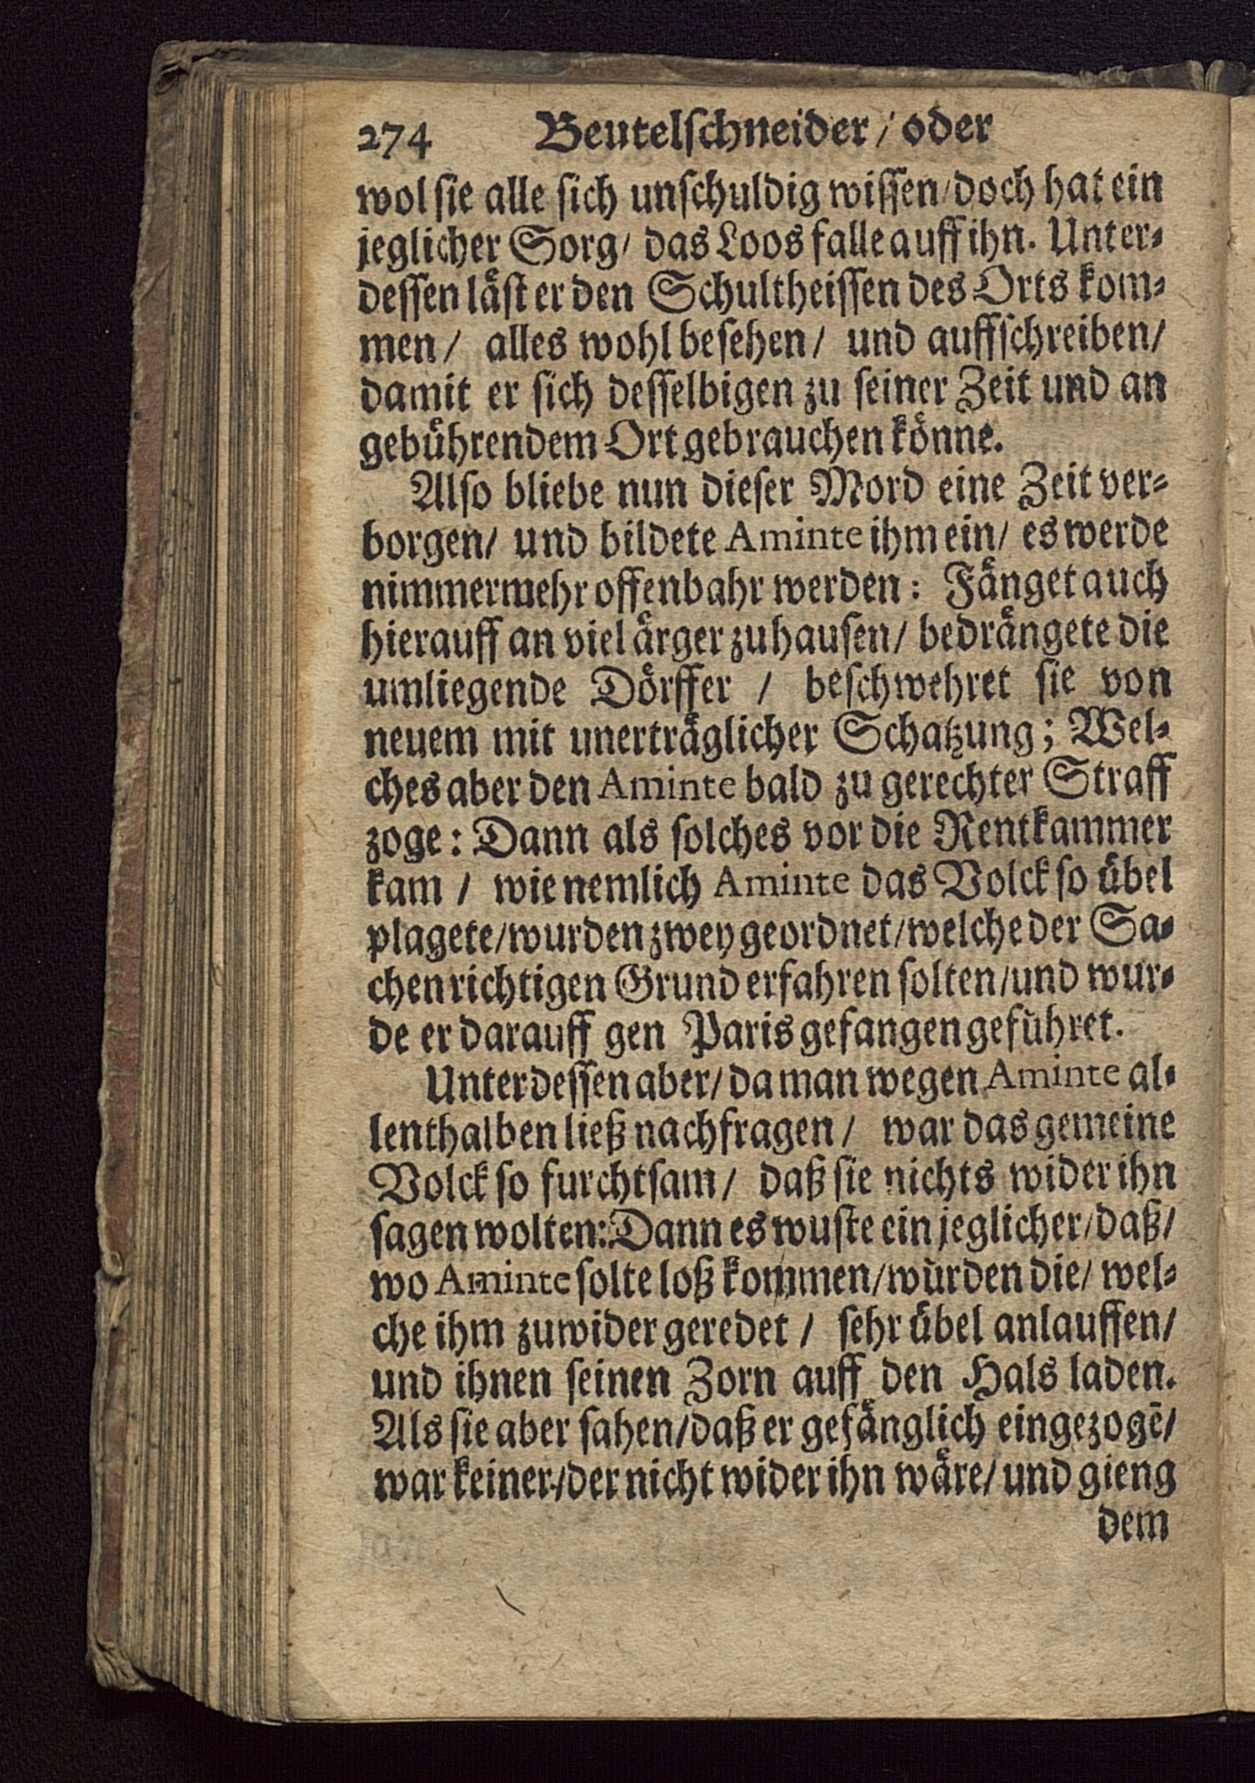 274 Beutelschneider / oder
wol sie alle sich unschuldig wissen / doch hat ein
jeglicher Sorg / das Loos falle auff ihn. Unter-
dessen läst er den Schultheissen des Orts kom-
men / alles wohl besehen / und auffschreiben /
damit er sich desselbigen zu seiner Zeit und an
gebührendem Ort gebrauchen könne.
Also bliebe nun dieser Mord eine Zeit ver-
borgen / und bildete Aminte ihm ein / es werde
nimmermehr offenbahr werden: Fänget auch
hierauff an viel ärger zuhausen / bedrängete die
umliegende Dörffer / beschwehret sie von
neuem mit unerträglicher Schatzung; Wel-
ches aber den Aminte bald zu gerechter Straff
zoge: Dann als solches vor die Rentkammer
kam / wie nemlich Aminte das Volck so übel
plagete / wurden zwey geordnet / welche der Sa-
chen richtigen Grund erfahren solten / und wur-
de er darauff gen Paris gefangen geführet.
Unterdessen aber / da man wegen Aminte al-
lenthalben ließ nachfragen / war das gemeine
Volck so furchtsam / daß sie nichts wider ihn
sagen wolten: Dann es wuste ein jeglicher / daß /
wo Aminte solte loß kommen / würden die / wel-
che ihm zuwider geredet / sehr übel anlauffen /
und ihnen seinen Zorn auff den Hals laden.
Als sie aber sahen / daß er gefänglich eingezogē /
war keiner / der nicht wider ihn wäre / und gieng
dem